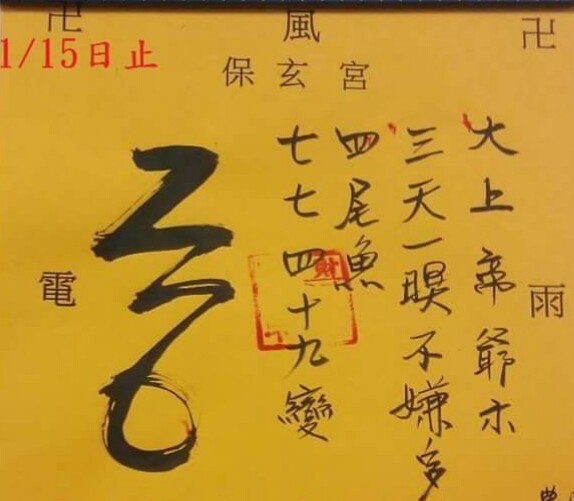 卍 風 卍
1/15日止
保玄宮
大上帝爺示
三天一瞑不嫌多
四尾魚
七七四十九變
財
電
雨